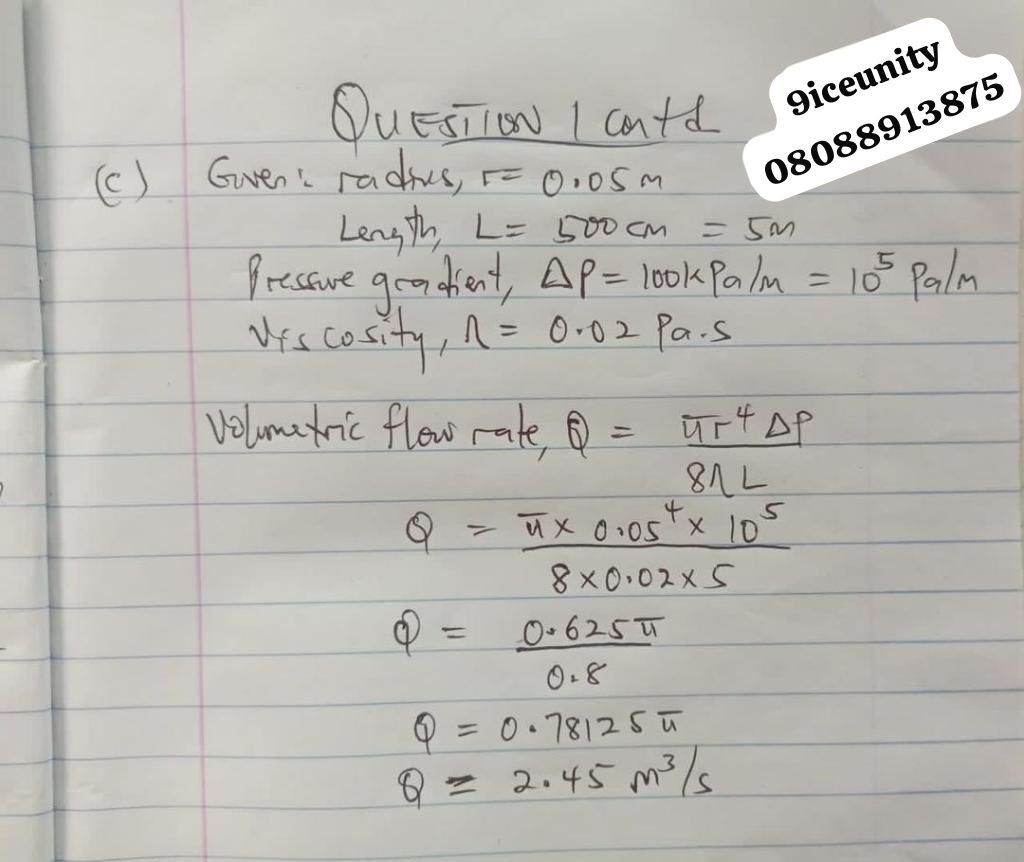 9iceunity
08088913875
QUESTION 1 contd
(c) Given: radius, r = 0.05m
Length, L = 500cm = 5m
Pressure gradient, ΔP = 100kPa/m = 10⁵ Pa/m
Viscosity, η = 0.02 Pa.s
Volumetric flow rate, Q = πr⁴ΔP
8ηL
Q = π x 0.05⁴ x 10⁵
8 x 0.02 x 5
Q = 0.625π
0.8
Q = 0.78125π
Q = 2.45 m³/s